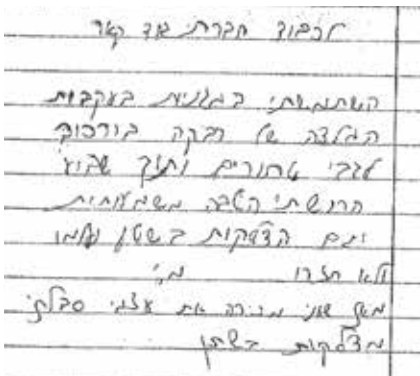 לכבוד חברת גוד קאר
השתמשתי בגלגלית בעקבות
המלצה של רבקה בורכוב
לגבי טחורים ותוך שבוע
הרגשתי הטבה משמעותית
יתם הדלקות בשתן נעלמו
ולא חזרו
מאז שאני מכירה את עצמי סבלתי
מדלקות בשתן